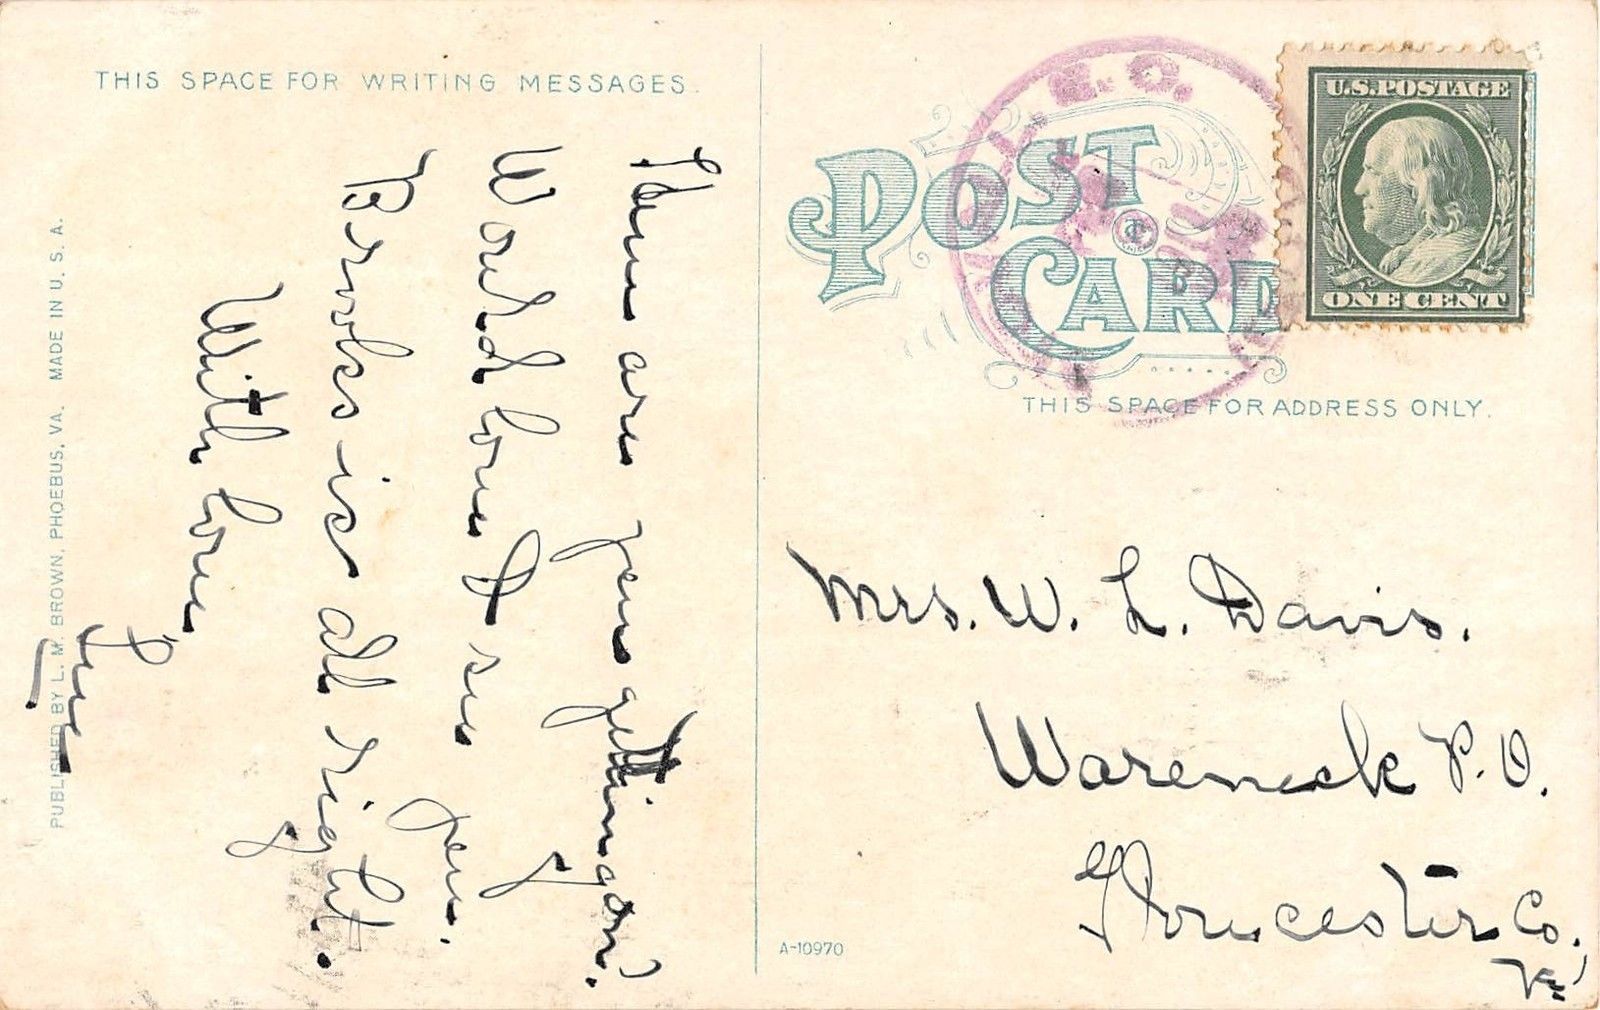 THIS SPACE FOR WRITING MESSAGES.
How are you getting on?
Would love to see you.
Brooks is all right.
With love
PUBLISHED BY L. M. BROWN, PHOEBUS, VA. MADE IN U. S. A.
POST
CARD
P.O.
U.S. POSTAGE
ONE CENT
THIS SPACE FOR ADDRESS ONLY.
Mrs. W. L. Davis.
Wareneck P.O.
Gloucester Co.,
Va
A-10970